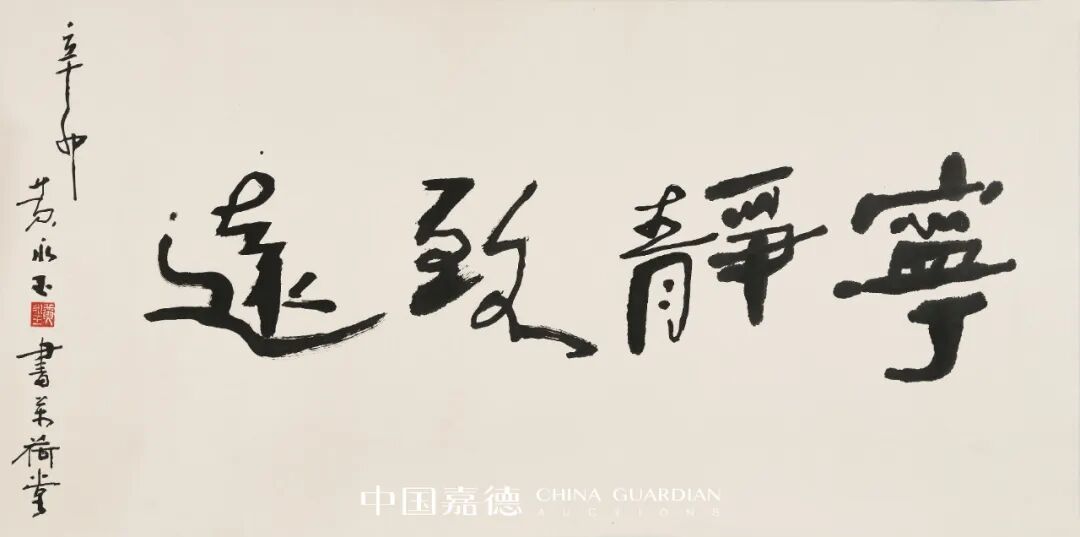 寧靜致遠
辛卯
黃永玉
書萬荷堂
中国嘉德 CHINA GUARDIAN
AUCTIONS